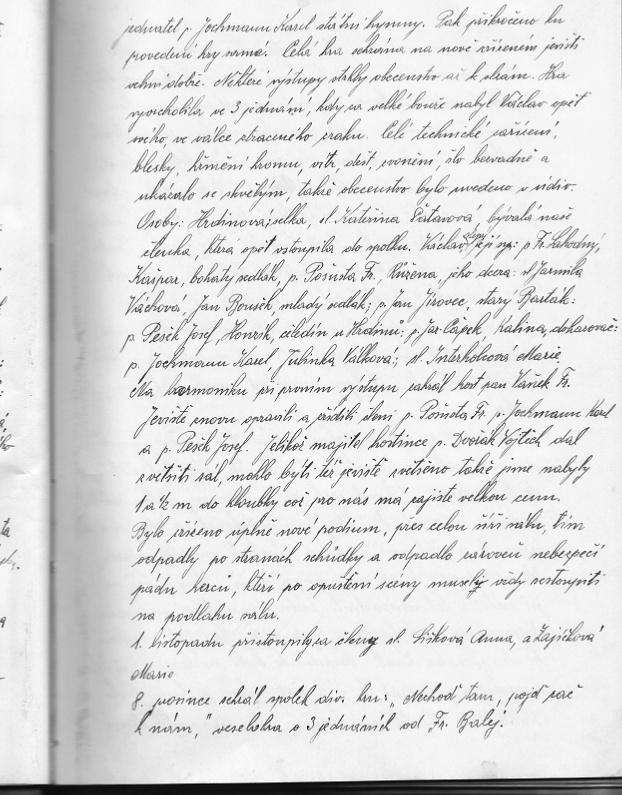 jednatel p. Jochmann Karel státní hymny. Pak přikročeno ku
provedení hry samé. Celá hra sehrána na nově zřízeném jevišti
velmi dobře. Některé výstupy strhly obecenstvo až k slzám. Hra
vyvrcholila ve 3 jednání, kdy za velké bouře nabyl Václav opět
svého, ve válce straceného zraku. Celé technické zařízení,
blesky, hřmění hromu, vítr, déšť, zvonění, šlo bezvadně a
ukázalo se skvělým, takže obecenstvo bylo uvedeno v údiv.
Osoby: Hrdinová; selka, sl. Kateřina Patavová, bývalá naše
členka, která opět vstoupila do spolku. Václav slepý její syn: p Fr. Lahodný,
Kašpar, bohatý sedlák, p. Pošusta Fr., Růžena, jeho dcera: sl Jarmila
Váchová, Jan Boušek, mladý sedlák; p. Jan Jírovec, starý Barták:
p. Pešek Josef, Honzík, čeledín u Hrdinů: p. Jar. Čápek, Kalina, dohazovač:
p. Jochmann Karel, Julinka Válková:, sl. Interholcová Marie,
Na harmoniku při prvním výstupu zahrál host pan Vaněk Fr.
Jeviště znovu opravili a zřídili členi p. Pošusta Fr. p. Jochmann Karel
a p. Pešek Josef. Jelikož majitel hostince p. Dvořák Vojtěch dal
zvětšiti sál, mohlo býti též jeviště zvětšeno takže jsme nabyly
1 a ½ m do hloubky což pro nás má zajisté velkou cenu.
Bylo zřízeno úplně nové podium, přes celou šíři sálu, tím
odpadly po stranách schůdky a odpadlo zároveň nebezpečí
pádu herců, kteří po opuštění scény musely vždy sestoupiti
na podlahu sálu.
1. listopadu přistoupily za členy sl. Lišková Anna, a Zajíčková
Marie
8. prosince sehrál spolek div. hru: „Nechoď tam, pojď zač
k nám," veselohra o 3 jednáních od Fr. Balej.